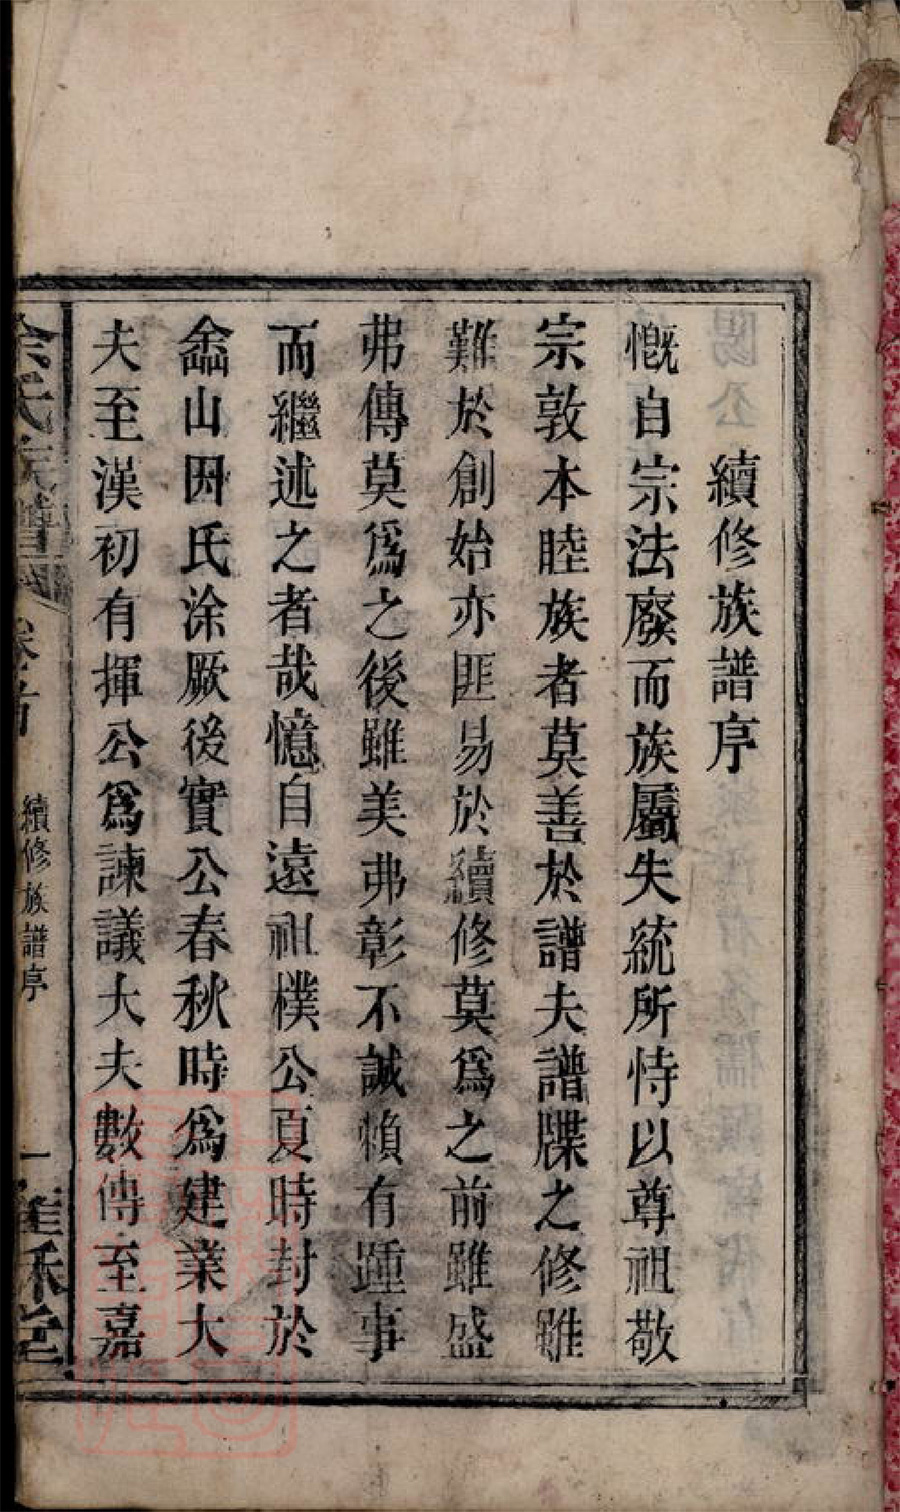 續修族譜序
慨自宗法廢而族屬失統所恃以尊祖敬
宗敦本睦族者莫善於譜夫譜牒之修雖
難於創始亦匪易於續修莫爲之前雖盛
弗傳莫爲之後雖美弗彰不誠賴有踵事
而繼述之者哉憶自遠祖樸公夏時封於
嵞山因氏涂厥後實公春秋時爲建業大
夫至漢初有揮公爲諫議大夫數傳至嘉
氏族譜 卷首 續修族譜序 一 堂